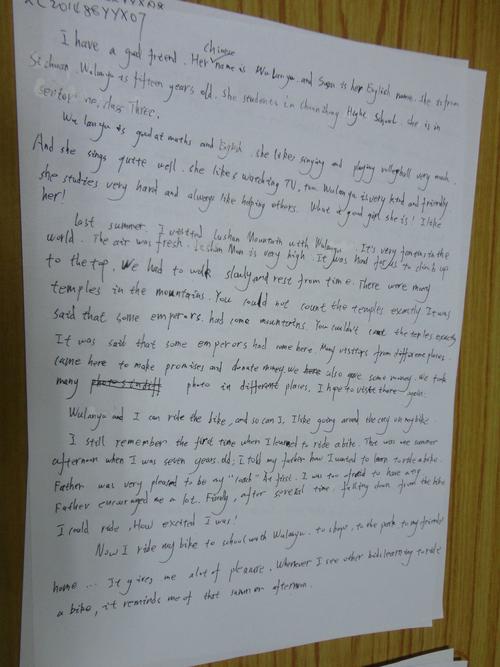 I have a good friend. Her Chinese name is Wu Lanyu. and Susan is her English name. she is from
Sichuan. Wulanyu is fifteen years old. She students in High School. she is in
senior one, class Three.
Wu lanyu is good at maths and English. she likes singing and playing volleyball very much.
And she sings quite well. she likes watching TV, too. Wulanyu is very kind and friendly
she studies very hard and always like helping others. What a good girl she is! I like
her!
last summer. I visited Lushan Mountain with Wulanyu. It's very famous in the
world. The air was fresh. Lushan Moun is very high. It was hard for us to climb up
to the top. We had to walk slowly and rest from time. There were many
temples in the mountains. You could not count the temples exactly. It was
said that some emperors. had come mountains. You couldn't count the temples exactly
It was said that some emperors had come here. Many visitors from different places.
came here to make promises and donate money. we here also gave some money. We took
many photo in different places. I hope to visit there again.
Wulanyu and I can ride the bike, and so can I, I like going around the city on my bike.
I still remember the first time when I learned to ride a bike. That was one summer
afternoon when I was seven years. old; I told my father how I wanted to learn to ride a bike.
Father was very pleased to be my "coach" At first. I was too afraid to have a try
Father encouraged me a lot. Finally, after several time. falling down from the bike
I could ride, How excited I was!
Now I ride my bike to school with Wulanyu. to shops, to the park to my friends'
home ... It gives me a lot of pleasure. Whenever I see other kids learning to ride
a bike, it reminds me of that summer afternoon.